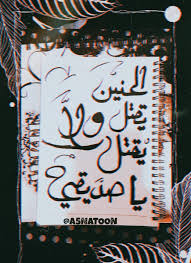 الحنين
يقتل ولا
يُقتل
يا صديقي
@ASMATOON